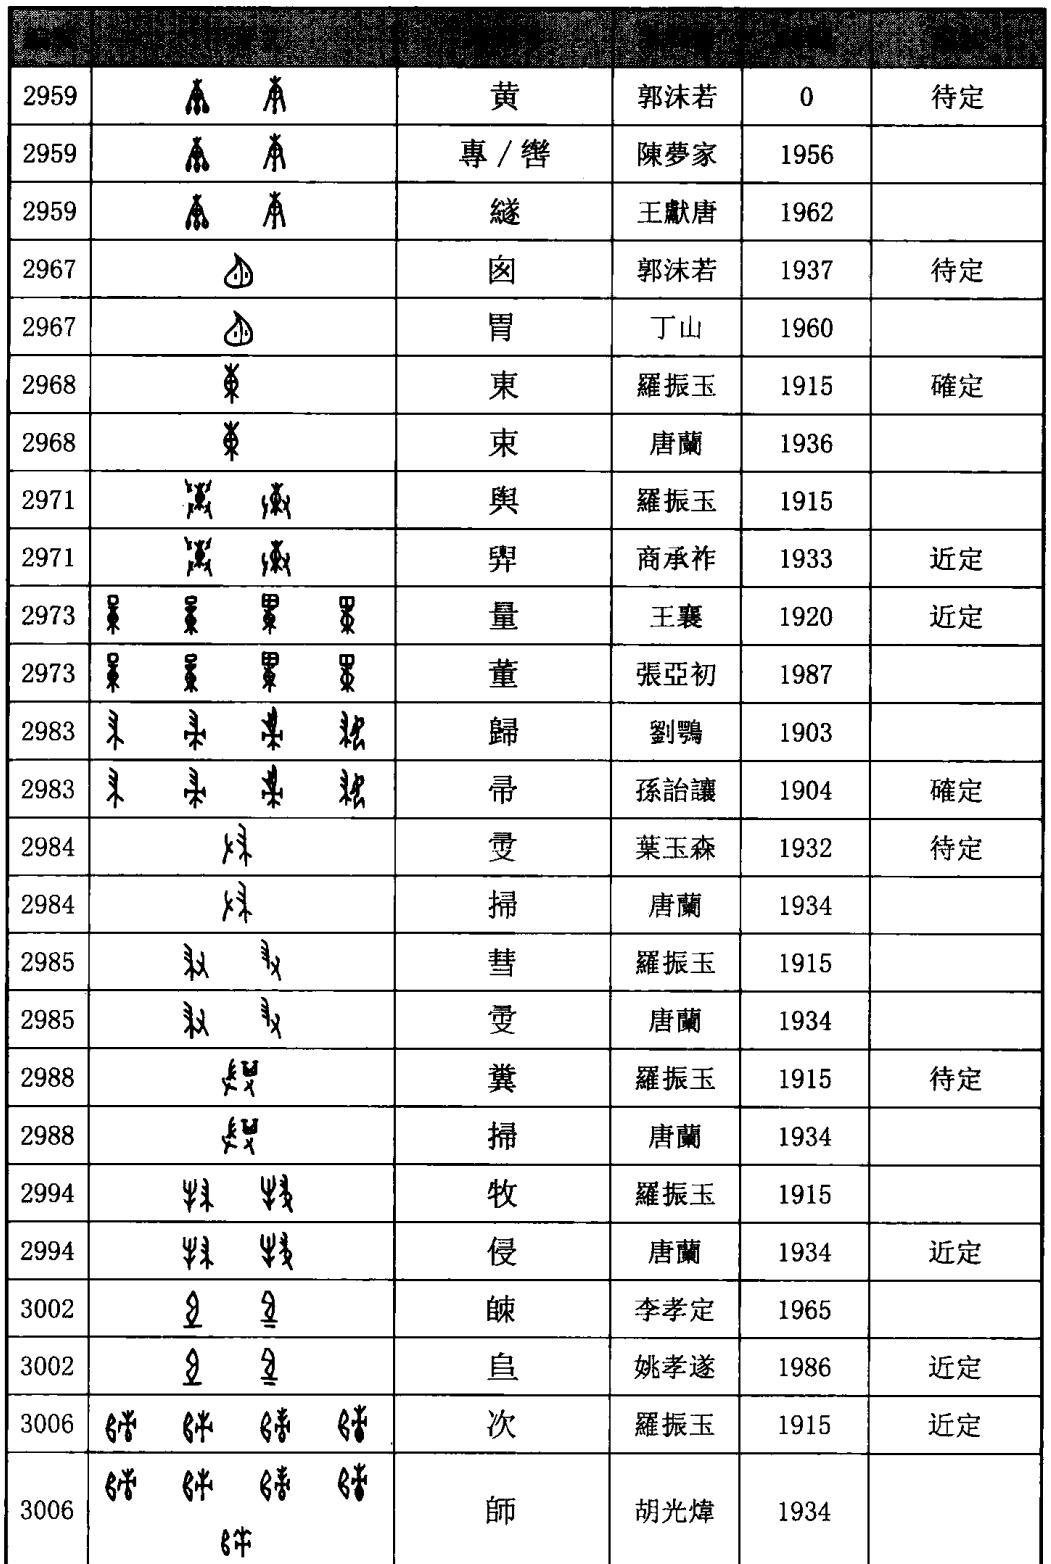 2959 黄 郭沫若 0 待定
2959 專／轡 陳夢家 1956
2959 繸 王獻唐 1962
2967 囟 郭沫若 1937 待定
2967 胃 丁山 1960
2968 東 羅振玉 1915 確定
2968 束 唐蘭 1936
2971 輿 羅振玉 1915
2971 商承祚 1933 近定
2973 量 王襄 1920 近定
2973 董 張亞初 1987
2983 歸 劉鶚 1903
2983 帚 孫詒讓 1904 確定
2984 葉玉森 1932 待定
2984 掃 唐蘭 1934
2985 彗 羅振玉 1915
2985 唐蘭 1934
2988 糞 羅振玉 1915 待定
2988 掃 唐蘭 1934
2994 牧 羅振玉 1915
2994 侵 唐蘭 1934 近定
3002 李孝定 1965
3002 姚孝遂 1986 近定
3006 次 羅振玉 1915 近定
3006 師 胡光煒 1934